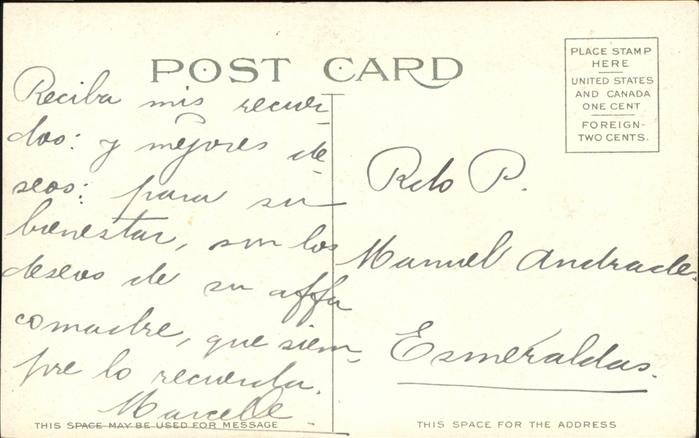 POST CARD
PLACE STAMP
HERE
UNITED STATES
AND CANADA
ONE CENT
FOREIGN-
TWO CENTS.
Reciba mis recuer-
dos: y mejores de
seos: para su
bienestar, son los
deseos de su affa
comadre, que siem-
pre lo recuerda.
Marcelle
THIS SPACE MAY BE USED FOR MESSAGE
Rdo P.
Manuel Andrade.
Esmeraldas.
THIS SPACE FOR THE ADDRESS